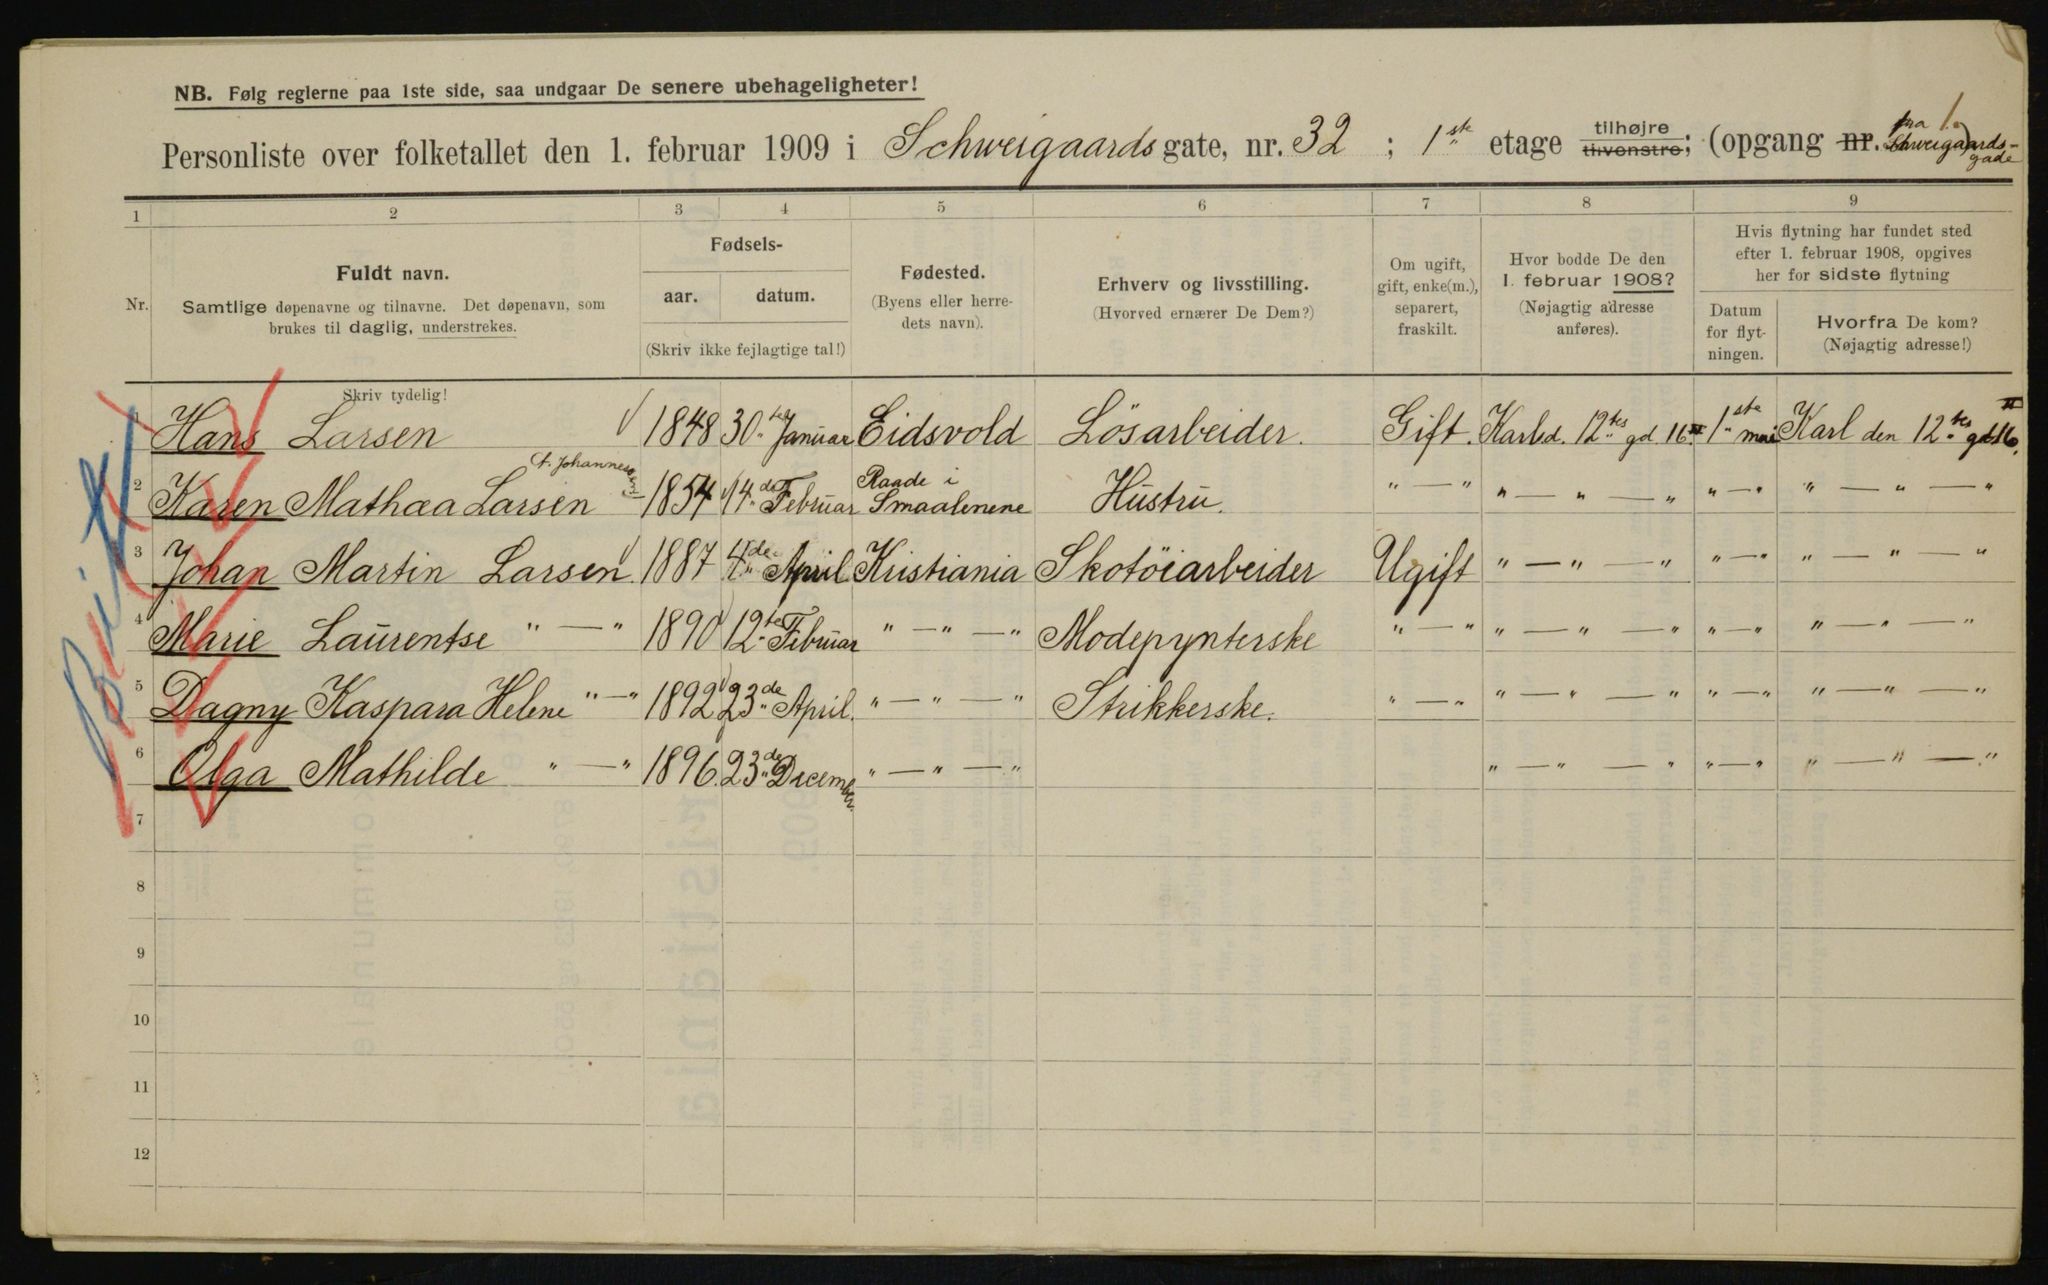 NB. Følg reglerne paa 1ste side, saa undgaar De senere ubehageligheter!
Personliste over folketallet den 1. februar 1909 i Schweigaards gate, nr. 32 ; 1ste etage tilhøjre tilvenstre; (opgang nr. fra 1. Schweigaards-gade)
1 2 3 4 5 6 7 8 9
Nr.
Fuldt navn.
Samtlige døpenavne og tilnavne. Det døpenavn, som
brukes til daglig, understrekes.
Skriv tydelig!
Fødsels-
aar. datum.
(Skriv ikke fejlagtige tal!)
Fødested.
(Byens eller herre-
dets navn).
Erhverv og livsstilling.
(Hvorved ernærer De Dem?)
Om ugift,
gift, enke(m.),
separert,
fraskilt.
Hvor bodde De den
1. februar 1908?
(Nøjagtig adresse
anføres).
Hvis flytning har fundet sted
efter 1. februar 1908, opgives
her for sidste flytning
Datum
for flyt-
ningen.
Hvorfra De kom?
(Nøjagtig adresse!)
1 Hans Larsen 1848 30te Januar Eidsvold Lösarbeider. Gift. Karl d. 12tes gd. 16 II 1ste mai Karl den 12tes gd. 16 II
2 Karen Mathæa Larsen f. Johannesen 1854 14de Februar Raade i Smaalenene Hustru. " — " " — " — " " — " " — " — "
3 Johan Martin Larsen 1887 4de April Kristiania Skotöiarbeider Ugift " — " — " " — " " — " — "
4 Marie Laurentse " — " 1890 12te Februar " — " — " Modepynterske " — " " — " — " " — " " — " — "
5 Dagny Kaspara Helene " — " 1892 23de April. " — " — " Strikkerske. " — " " — " — " " — " " — " — "
6 Olga Mathilde " — " 1896. 23de December. " — " — " " — " — " " — " " — " — "
7
8
9
10
11
12